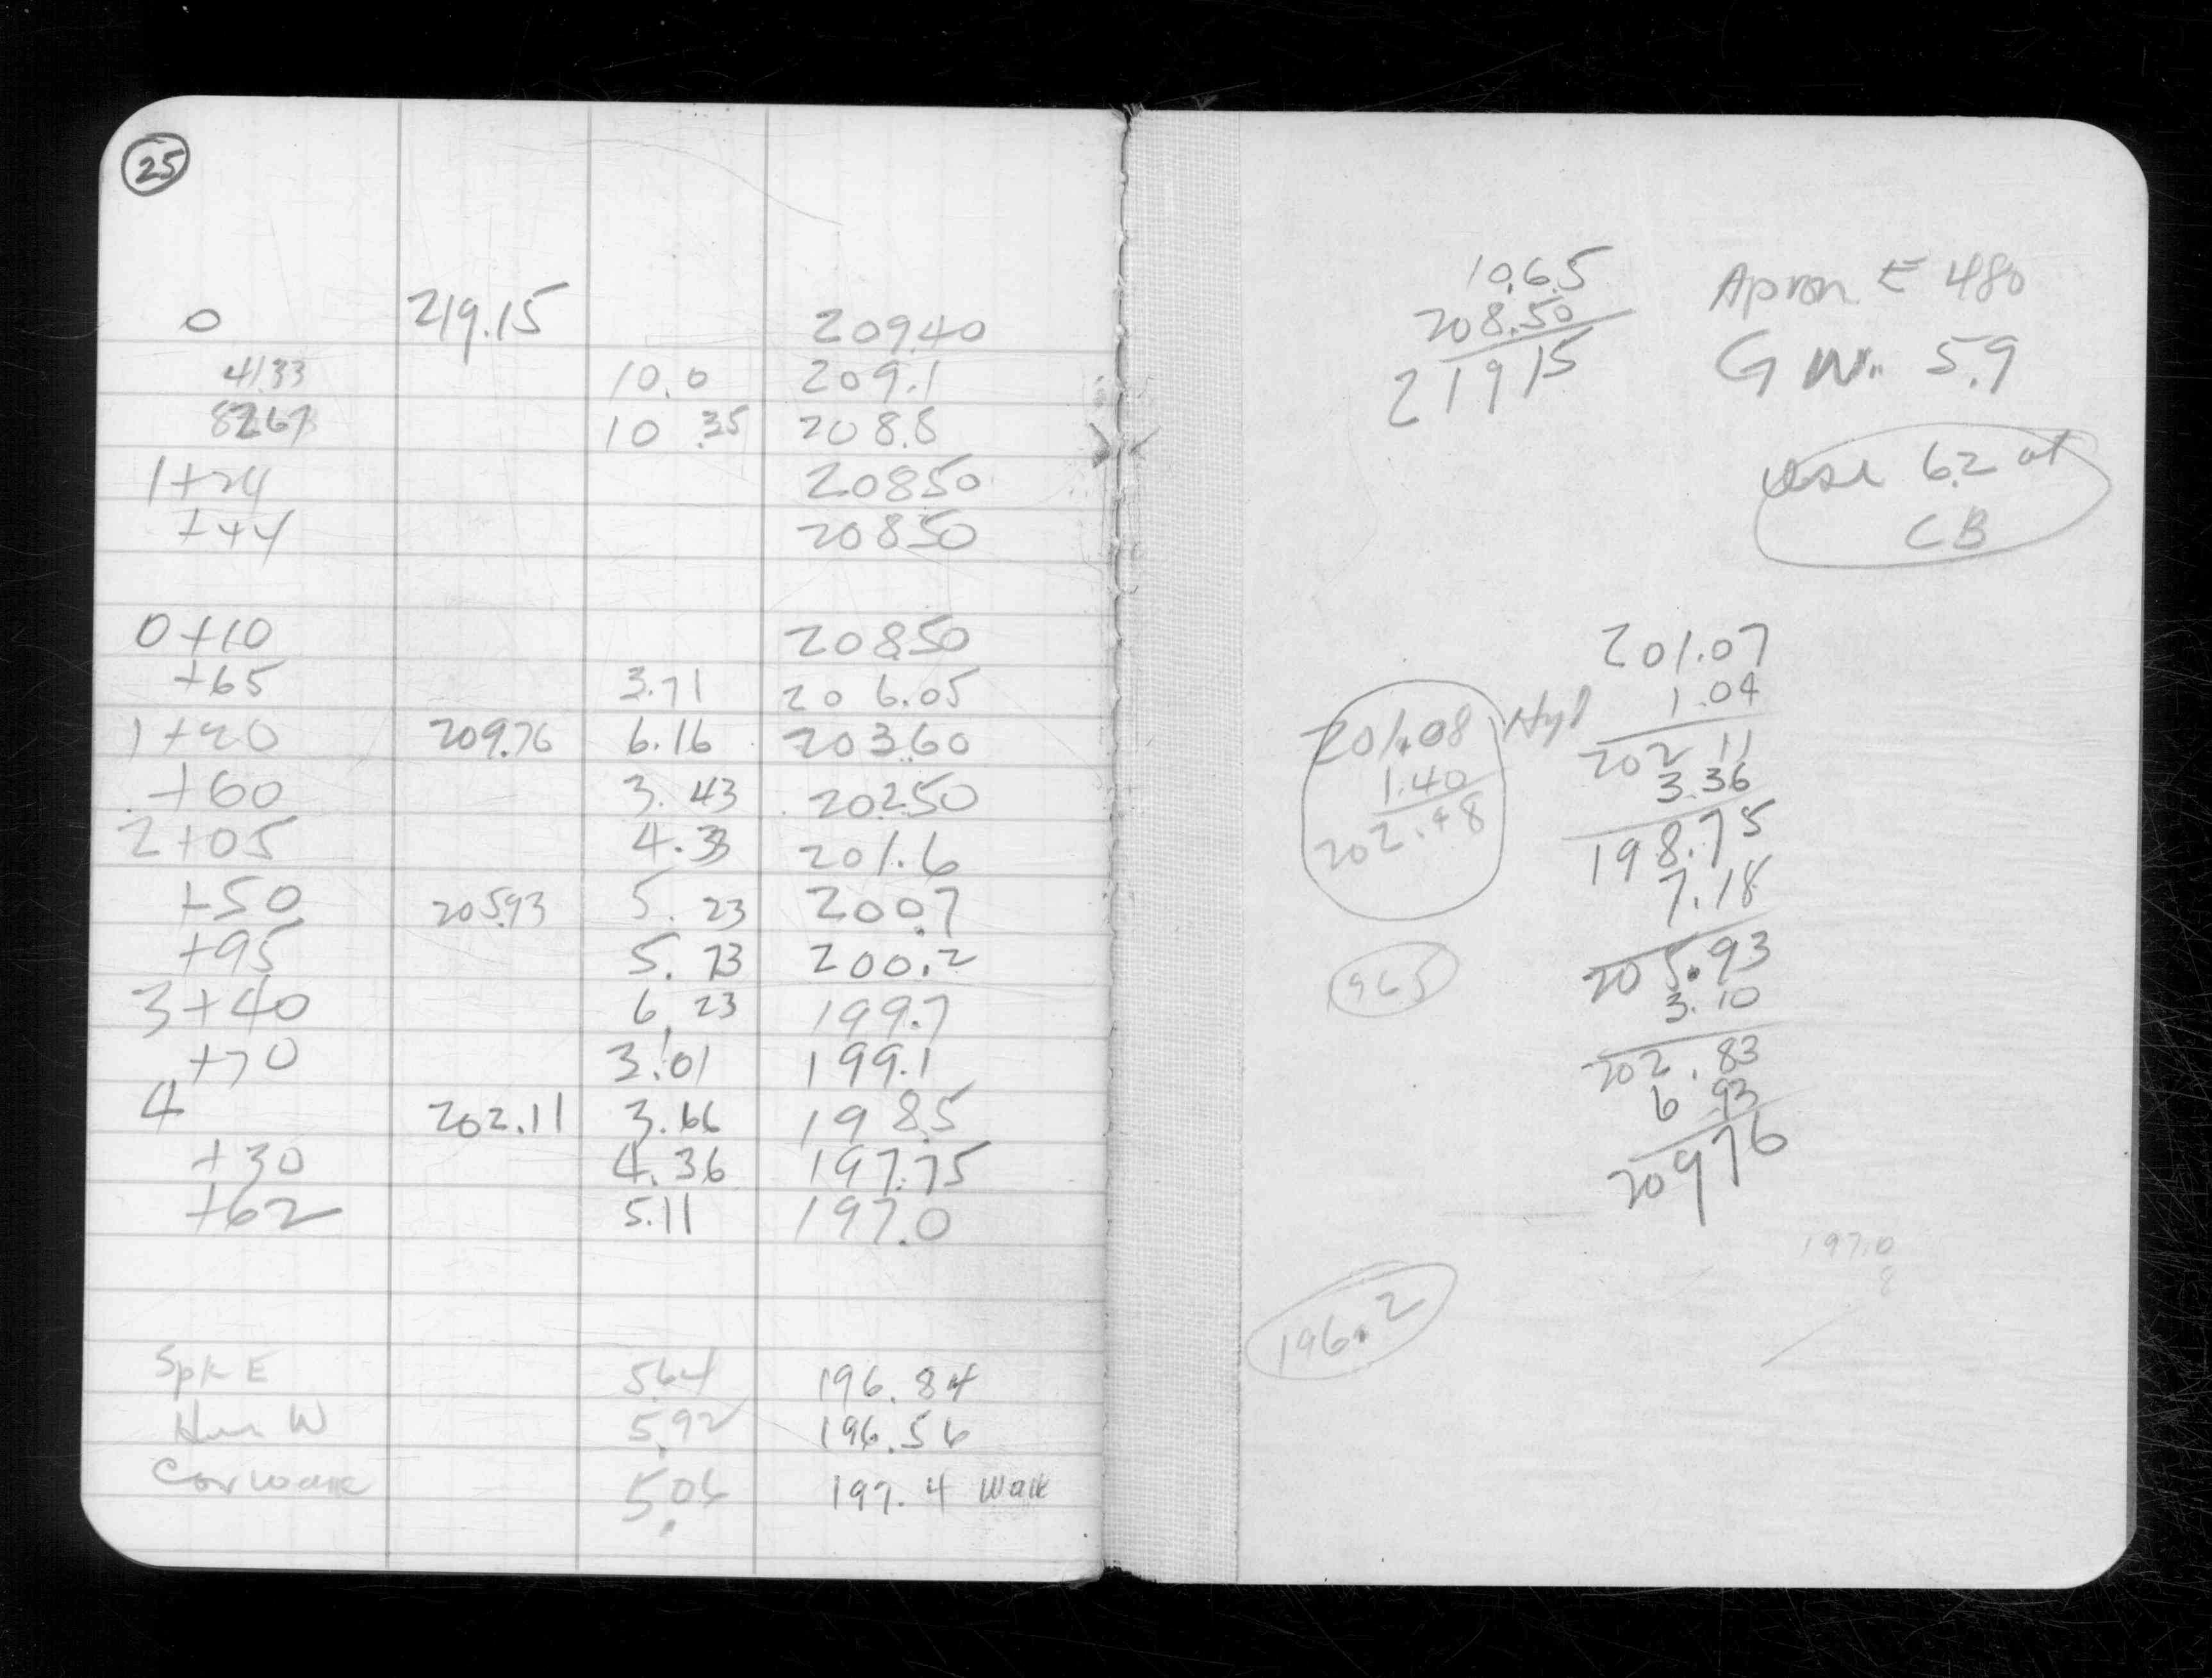 25
0 219.15 209.40
41.33 10.0 209.1
82.67 10.35 208.8
1+24 208.50
+44 208.50
0+10 208.50
+65 3.71 206.05
1+20 209.76 6.16 203.60
+60 3.43 202.50
2+05 4.33 201.6
+50 205.93 5.23 200.7
+95 5.73 200.2
3+40 6.23 199.7
+70 3.01 199.1
4 202.11 3.66 198.5
+30 4.36 197.75
+62 5.11 197.0
Spk E 5.64 196.84
W 5.92 196.56
Cor walk 5.06 197.4 Walk
10.65
208.50
219 15
Apron E 480
G W. 5.9
use 6.2 at
CB
201.08 Hyd
1.40
202.48
965
201.07
1.04
202 11
3.36
198.75
7.18
205.93
3.10
202.83
6 93
209 76
197.0
8
196.2